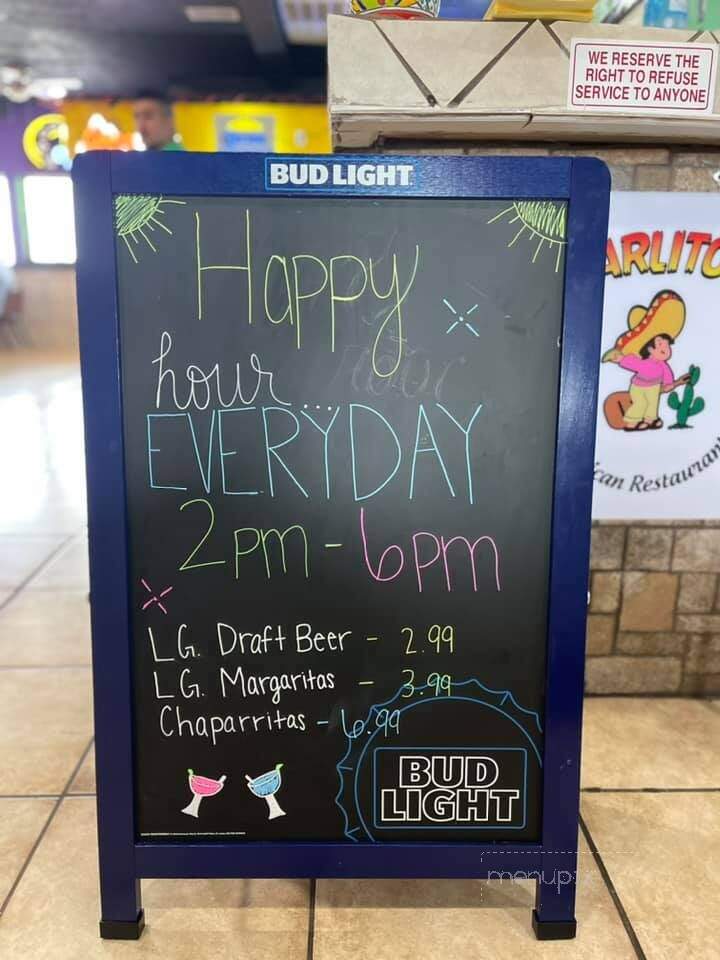 WE RESERVE THE
RIGHT TO REFUSE
SERVICE TO ANYONE
BUD LIGHT
Happy
hour...
EVERYDAY
2pm - 6pm
LG. Draft Beer - 2.99
LG. Margaritas - 3.99
Chaparritas - 6.99
BUD
LIGHT
ARLITO
can Restauran
menup